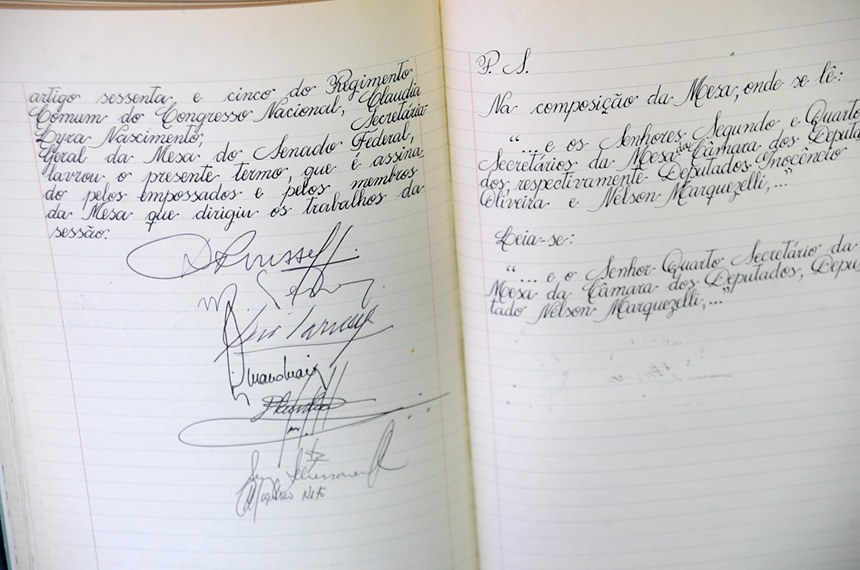 artigo sessenta e cinco do Regimento
Comum do Congresso Nacional, Claudia
Lyra Nascimento, Secretária
Geral da Mesa do Senado Federal,
lavrou o presente termo, que é assina-
do pelos empossados e pelos membros
da Mesa que dirigiu os trabalhos da
sessão.
P. S.
Na composição da Mesa, onde se lê:
"... e os Senhores Segundo e Quarto
Secretários da Mesa da Câmara dos Deputa
dos, respectivamente Deputados Inocêncio
Oliveira e Nelson Marquezelli,..."
Leia-se:
"... e o Senhor Quarto Secretário da
Mesa da Câmara dos Deputados, Depu
tado Nelson Marquezelli,..."